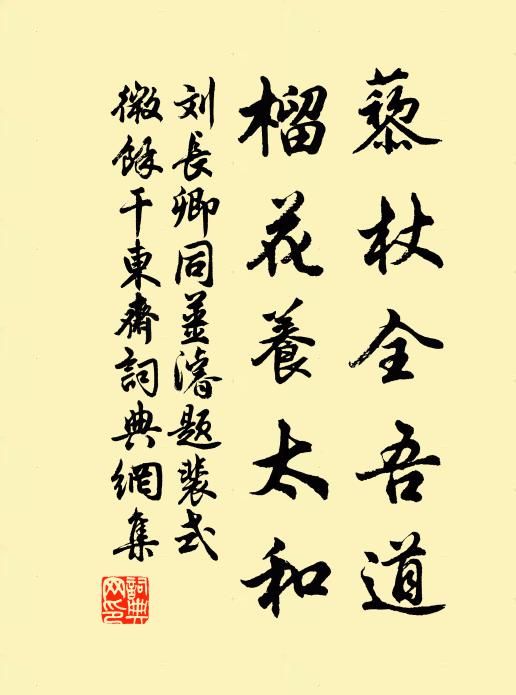 藜杖全吾道
榴花養太和
刘長卿同姜濬題裴式
微餘干東齋詞典網集
詞典网印